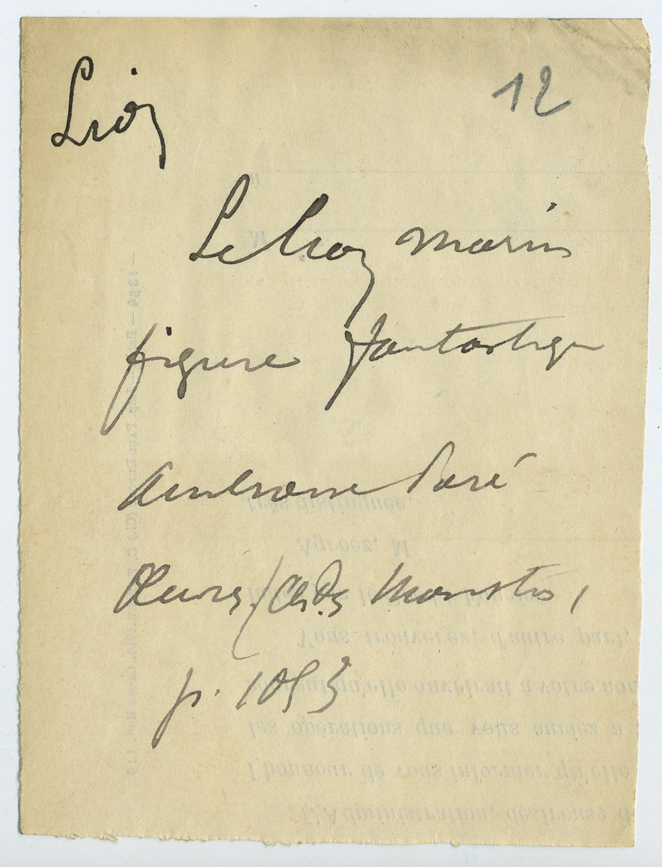 Lion
12
Le Lion marin
figure fantastique
Ambroise Paré
Œuvres (Ch. des Monstres,
p. 1053